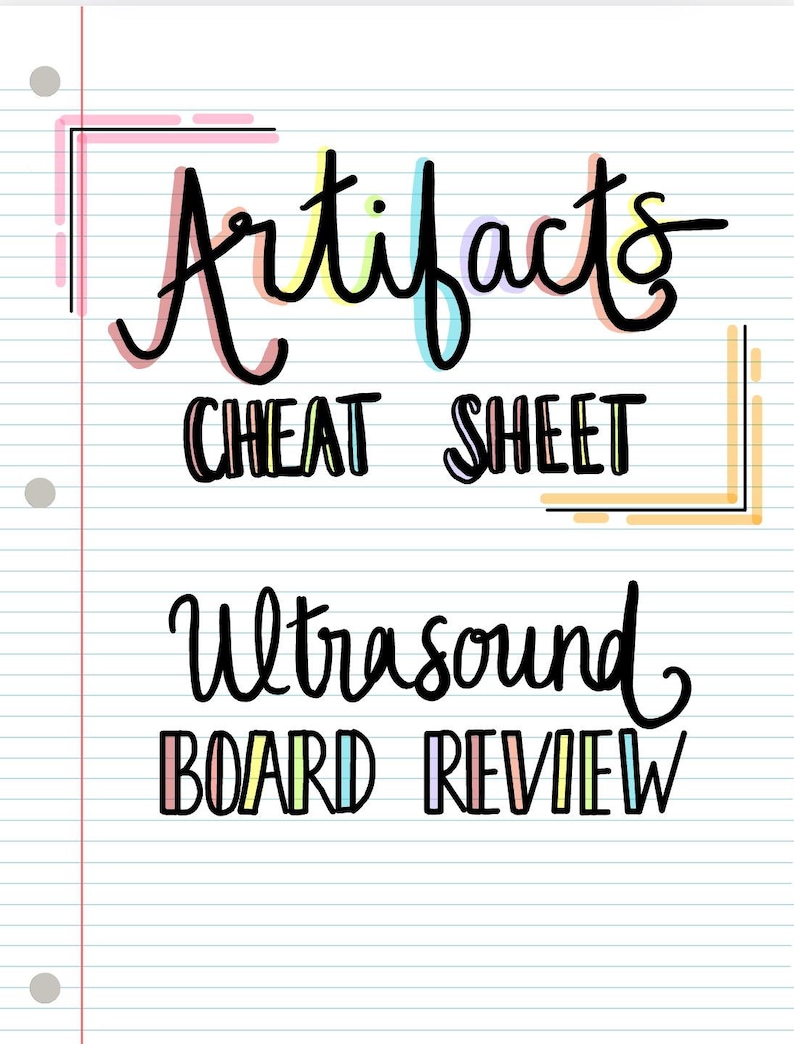 Artifacts
CHEAT SHEET
Ultrasound
BOARD REVIEW